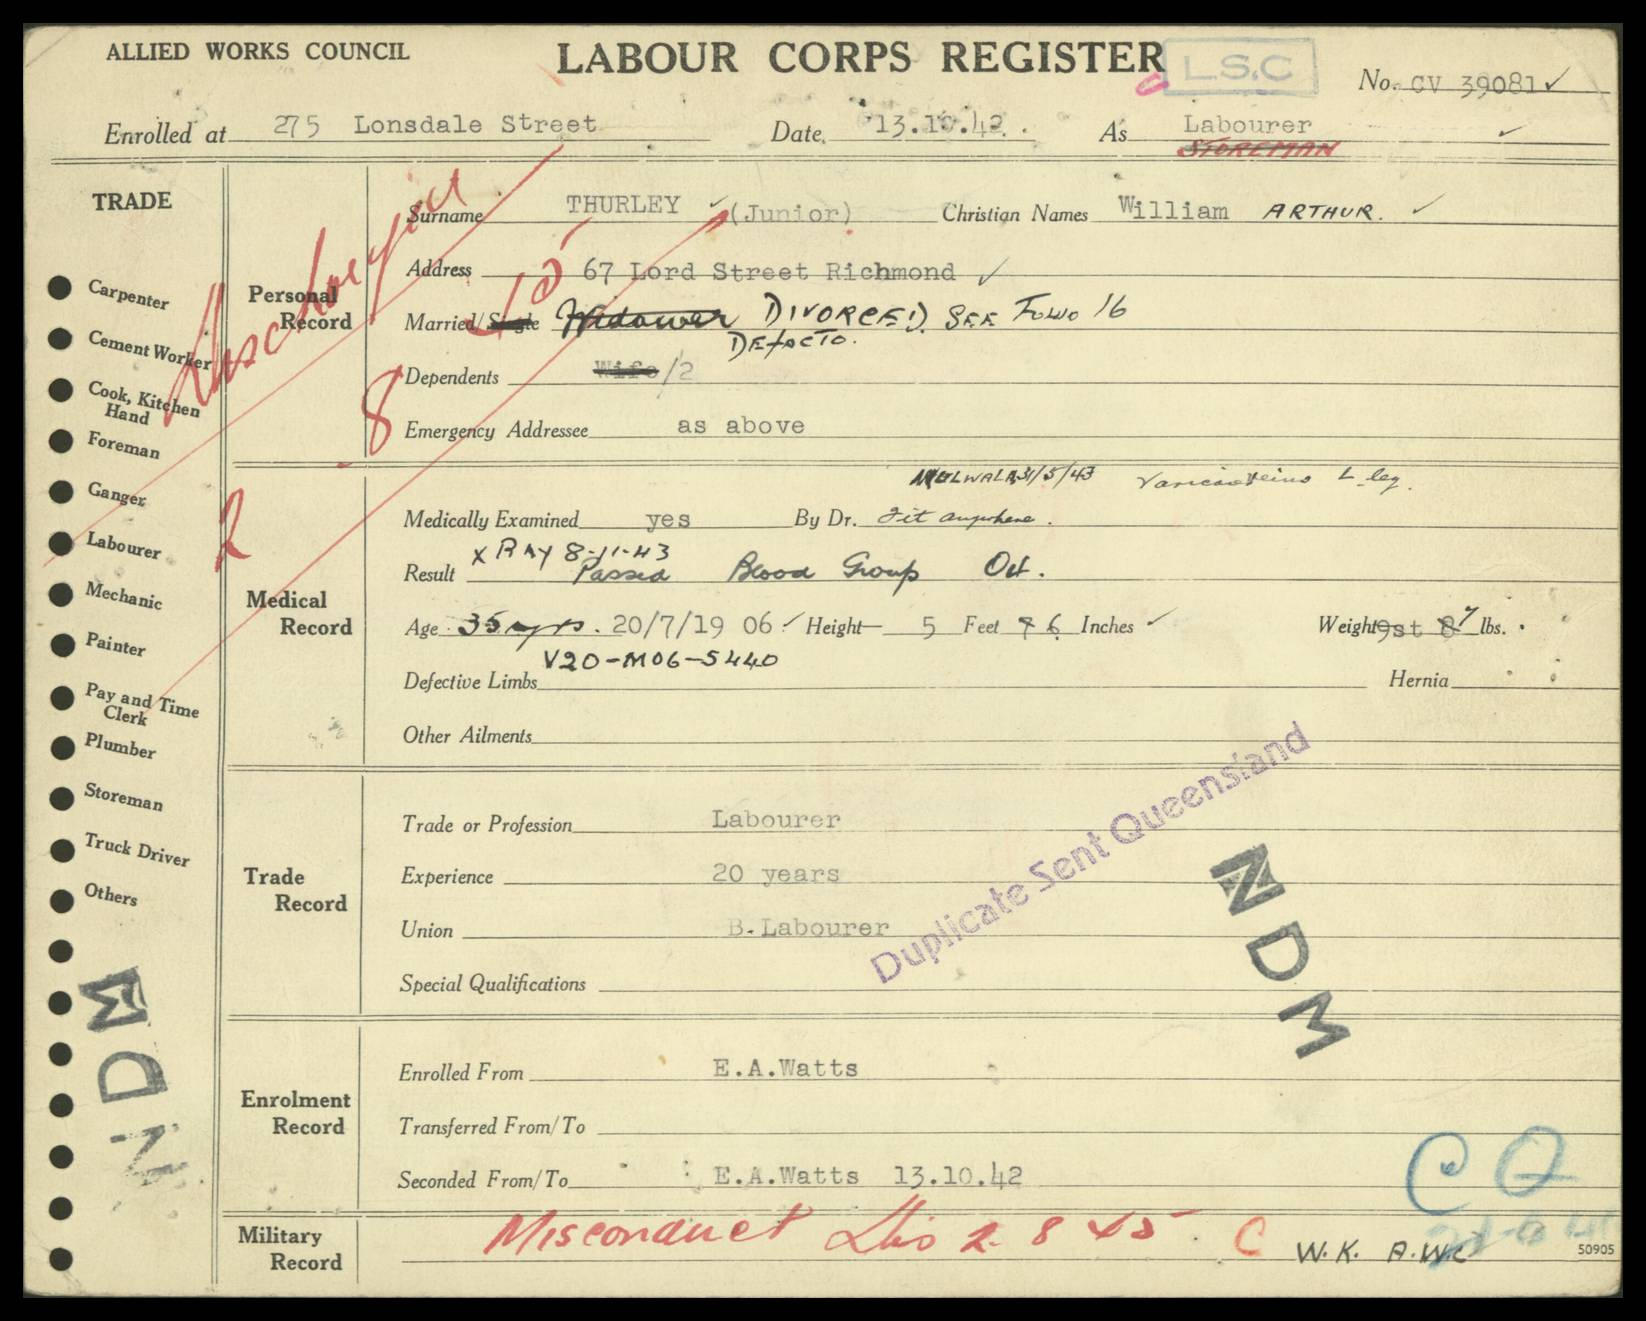 ALLIED WORKS COUNCIL LABOUR CORPS REGISTER L.S.C
No. CV 39081 ✓
Enrolled at 275 Lonsdale Street Date 13.10.42. As Labourer ✓
STOREMAN
TRADE
Carpenter
Cement Worker
Cook, Kitchen Hand
Foreman
Ganger
Labourer
Mechanic
Painter
Pay and Time Clerk
Plumber
Storeman
Truck Driver
Others
NDM
Discharged
2 8 45
Personal Record
Surname THURLEY ✓ (Junior) Christian Names William ARTHUR. ✓
Address 67 Lord Street Richmond ✓
Married/Single Widower DIVORCED. SEE FOLIO 16
DEFACTO.
Dependents Wife/2
Emergency Addressee as above
Medical Record
MULWALA 31/5/43 Varicose Veins L leg.
Medically Examined yes By Dr. Fit anywhere.
X RAY 8-11-43
Result Passed Blood Group O4.
Age 35 yrs. 20/7/19 06 ✓ Height 5 Feet 7 6 Inches ✓ Weight 9st 8 7 lbs.
V20-M06-5440
Defective Limbs Hernia
Other Ailments
Trade Record
Trade or Profession Labourer
Experience 20 years
Union B.Labourer
Special Qualifications
Duplicate Sent Queensland
NDM
Enrolment Record
Enrolled From E.A.Watts
Transferred From/To
Seconded From/To E.A.Watts 13.10.42
C Q
Military Record
Misconduct Dis 2 8 45 C W.K. A.W.C
50905